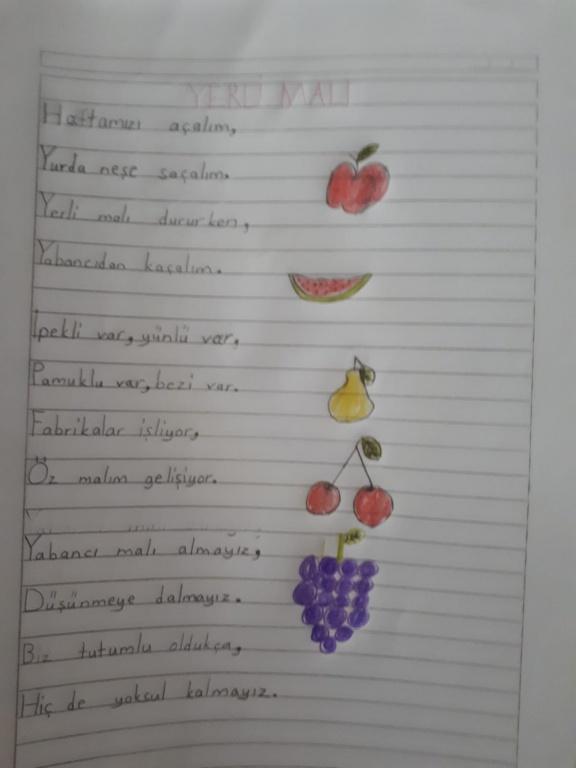 YERLİ MALI
Haftamızı açalım,
Yurda neşe saçalım.
Yerli malı dururken,
Yabancıdan kaçalım.
İpekli var, yünlü var,
Pamuklu var, bezi var.
Fabrikalar işliyor,
Öz malım gelişiyor.
Yabancı malı almayız,
Düşünmeye dalmayız.
Biz tutumlu oldukça,
Hiç de yoksul kalmayız.